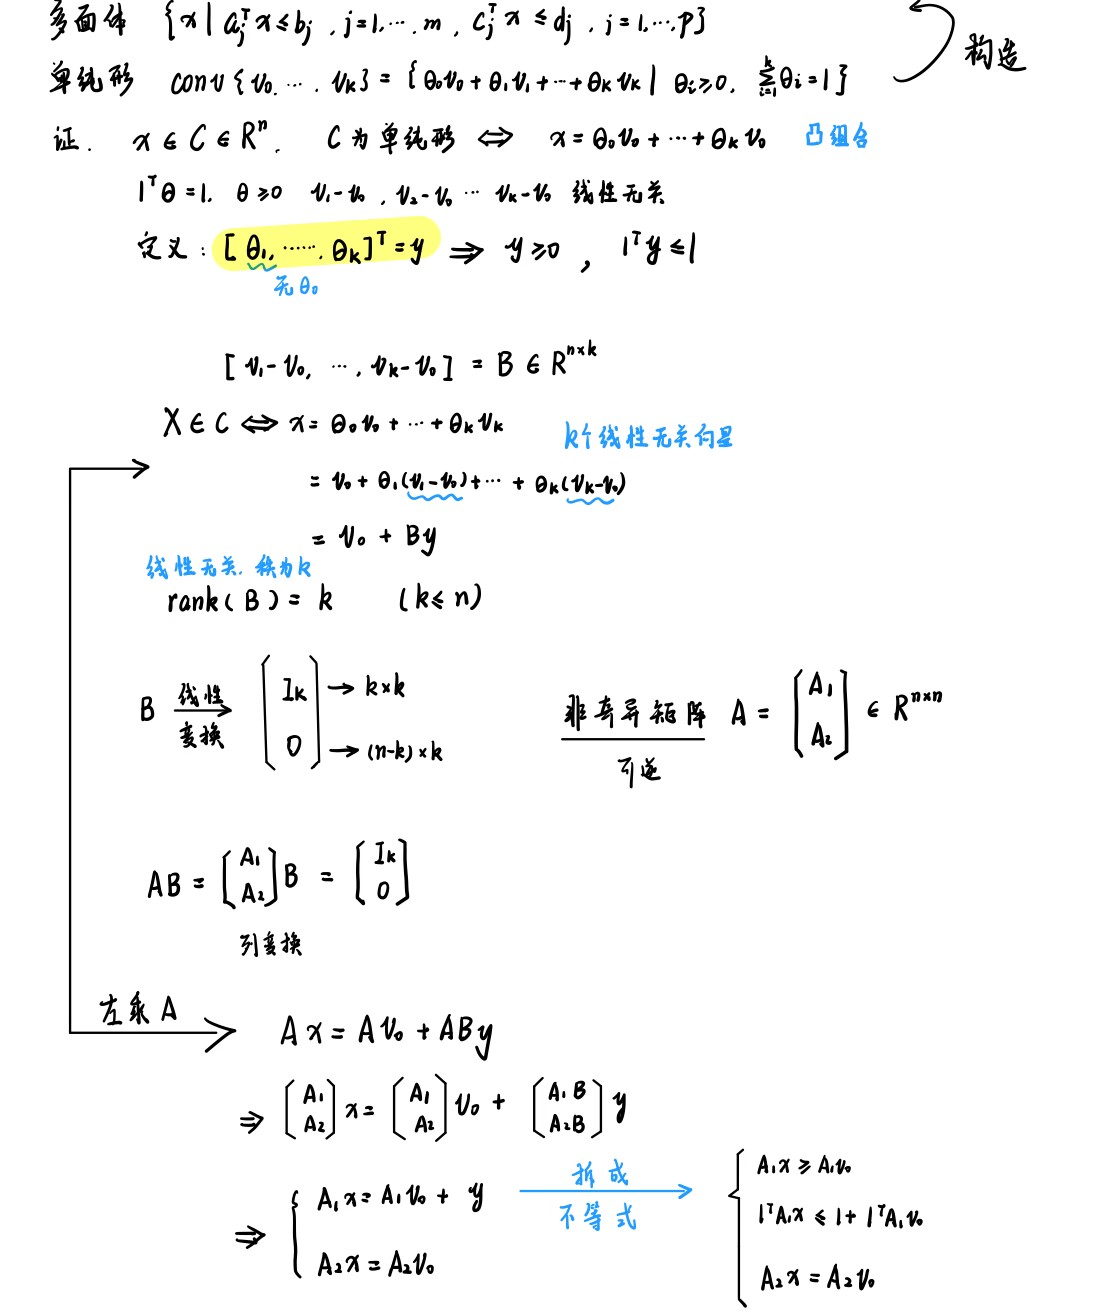 多面体 {x | aⱼᵀx ≤ bⱼ , j=1,…,m , cⱼᵀx ≤ dⱼ , j=1,…,p}
构造
单纯形 conv{v₀, …, vₖ} = {θ₀v₀ + θ₁v₁ + … + θₖvₖ | θᵢ≥0, Σᵢ₌₁ᵏθᵢ=1}
证. x ∈ C ∈ Rⁿ, C为单纯形 ⇔ x = θ₀v₀ + … + θₖv₀ 凸组合
1ᵀθ = 1, θ ≥ 0 v₁-v₀ , v₂-v₀ … vₖ-v₀ 线性无关
定义: [θ₁, ……, θₖ]ᵀ = y ⇒ y ≥ 0 , 1ᵀy ≤ 1
无θ₀
[v₁-v₀, …, vₖ-v₀] = B ∈ Rⁿˣᵏ
X ∈ C ⇔ x = θ₀v₀ + … + θₖvₖ
k个线性无关向量
= v₀ + θ₁(v₁-v₀) + … + θₖ(vₖ-v₀)
= v₀ + By
线性无关, 秩为k
rank(B) = k (k ≤ n)
B 线性变换 → [Iₖ; 0] → k×k → (n-k)×k
非奇异矩阵 A = [A₁; A₂] ∈ Rⁿˣⁿ
可逆
AB = [A₁; A₂] B = [Iₖ; 0]
列变换
左乘A
Ax = Av₀ + ABy
⇒ [A₁; A₂] x = [A₁; A₂] v₀ + [A₁B; A₂B] y
⇒ { A₁x = A₁v₀ + y
A₂x = A₂v₀
拆成
不等式
{ A₁x ≥ A₁v₀
1ᵀA₁x ≤ 1 + 1ᵀA₁v₀
A₂x = A₂v₀